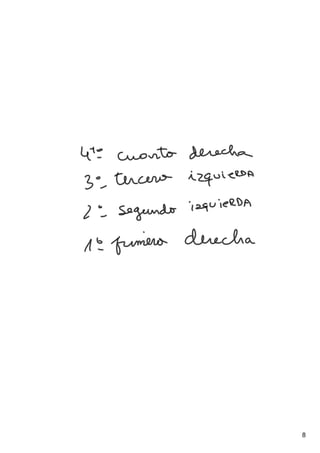 4º- cuarto derecha
3º- tercero izquieRDA
2º- segundo izquieRDA
1º- primero derecha
8